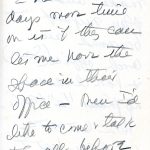 days over time
on it if they can
let me have the
space in their
office — then I'd
like to come & talk